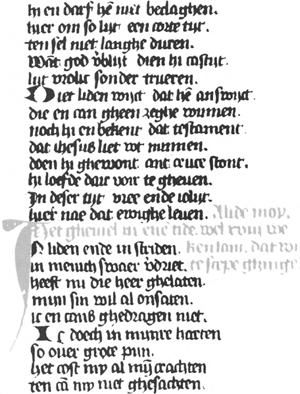 hi en darf hē niet beclaghen.
hier om so lijt een corte tijt.
ten sel niet langhe duren.
Wāt god v̄blijt dien hi castijt.
lijt vrolic sonder trueren.
liden wijct dat hē answijct.
die en can gheen zeghe winnen.
noch hi en bekent dat testament
dat ihesus liet tot minnen.
doen hi ghewont ant cruce stont.
hi loefde daer voir te gheven.
In deser tijt vree ende iolijt.
hier nae dat ewighe leven. Alide moy.
Het gheviel in ene tide.
N liden ende in striden.
in menich swaer v̄driet.
heeft mi die heer ghelaten
mijn sin wil al onsaten.
ic en cans ghedragen niet.
Ic doech in minre harten
so over grote pijn.
het cost my al mijn crachten
ten cā my niet ghesachten.